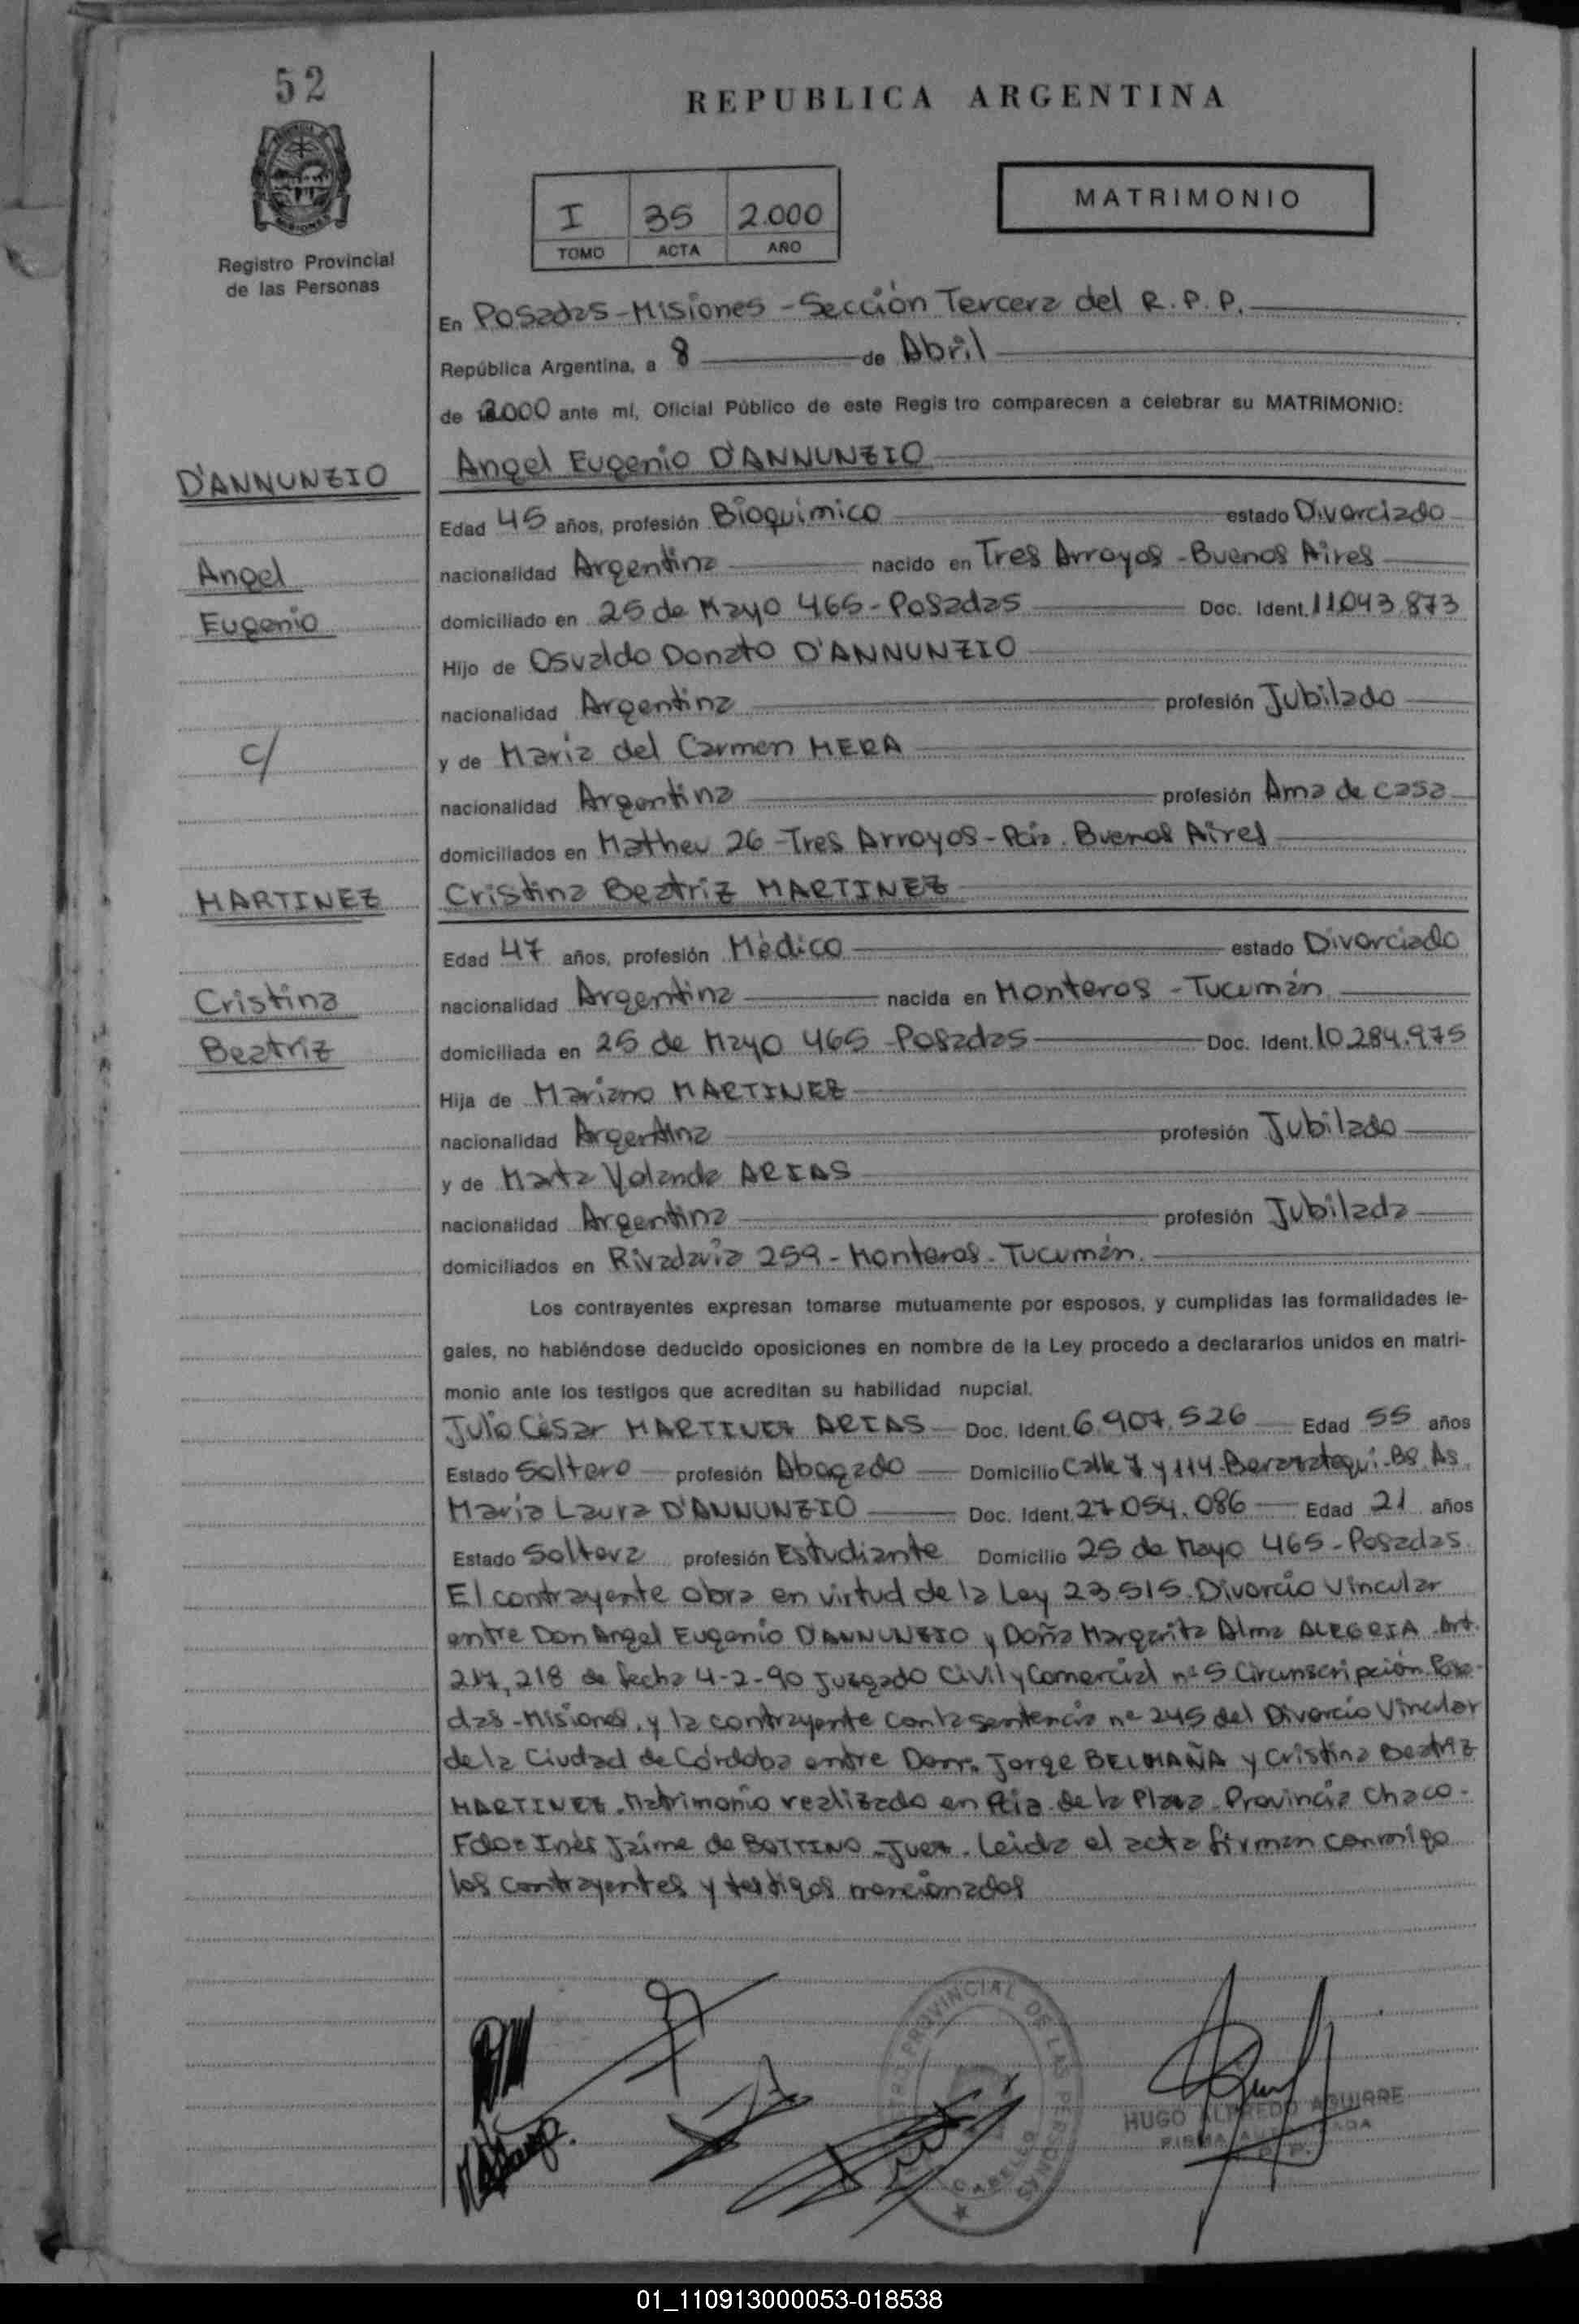 52
REPUBLICA ARGENTINA
MATRIMONIO
I 35 2.000
TOMO ACTA AÑO
Registro Provincial
de las Personas
En Posadas - Misiones - Sección Tercera del R. P. P.
República Argentina, a 8 de Abril
de 2000 ante mí, Oficial Público de este Regis tro comparecen a celebrar su MATRIMONIO:
D'ANNUNZIO
Angel Eugenio D'ANNUNZIO
Edad 45 años, profesión Bioquímico estado Divorciado
Angel
nacionalidad Argentina nacido en Tres Arroyos - Buenos Aires
Eugenio
domiciliado en 25 de Mayo 465 - Posadas Doc. Ident. 11.043.873
Hijo de Osvaldo Donato D'ANNUNZIO
nacionalidad Argentina profesión Jubilado
c/
y de Maria del Carmen MERA
nacionalidad Argentina profesión Ama de casa
domiciliados en Matheu 26 - Tres Arroyos - Pcia. Buenos Aires
MARTINEZ
Cristina Beatriz MARTINEZ
Edad 47 años, profesión Mèdico estado Divorciado
Cristina
nacionalidad Argentina nacida en Monteros - Tucumán
Beatriz
domiciliada en 25 de Mayo 465 - Posadas Doc. Ident. 10.284.975
Hija de Mariano MARTINEZ
nacionalidad Argentina profesión Jubilado
y de Marta Yolanda ARIAS
nacionalidad Argentina profesión Jubilada
domiciliados en Rivadavia 259 - Monteros - Tucumán.
Los contrayentes expresan tomarse mutuamente por esposos, y cumplidas las formalidades le-
gales, no habiéndose deducido oposiciones en nombre de la Ley procedo a declararlos unidos en matri-
monio ante los testigos que acreditan su habilidad nupcial.
Julio Cèsar MARTINEZ ARIAS Doc. Ident. 6.907.526 Edad 55 años
Estado Soltero profesión Abogado Domicilio Calle 7 y 114 Berazategui - Bs. As.
Maria Laura D'ANNUNZIO Doc. Ident. 27.054.086 Edad 21 años
Estado Soltera profesión Estudiante Domicilio 25 de Mayo 465 - Posadas.
El contrayente obra en virtud de la Ley 23.515. Divorcio Vincular
entre Don Angel Eugenio D'ANNUNZIO y Doña Margarita Alma ALEGRIA. Art.
217, 218 de fecha 4-2-90 Juzgado Civil y Comercial nº 5 Circunscripción Posa-
das - Misiones, y la contrayente con la sentencia nº 245 del Divorcio Vincular
de la Ciudad de Córdoba entre Jorge BELMAÑA y Cristina Beatriz
MARTINEZ. Matrimonio realizado en Pcia. de la Plaza - Provincia Chaco -
Fdo: Inés Jaime de BOTTINO - Juez. Leida el acta firman conmigo
los contrayentes y testigos mencionados
PROVINCIAL DE LAS PERSONAS
HUGO ALFREDO AGUIRRE
FIRMA AUTORIZADA
01_110913000053-018538